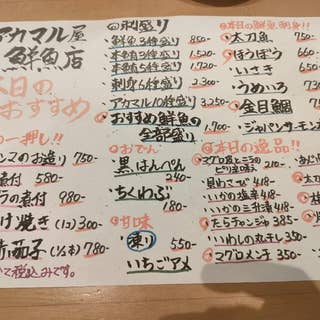 アカマル屋
鮮魚店
本日の
おすすめ
の一押し!!
ンマのお造り 750-
煮付 580-
ラの煮付 980-
け焼き (1コ) 300-
赤茄子 (1/2本) 780-
て税込みです。
刺盛り
鮮魚3種盛り 850-
本鮪3種盛り 1.520-
本鮪5種盛り 1.720-
刺身6種盛り 2.300-
アカマル10種盛り 3.250-
おすすめ鮮魚の
全部盛り
おでん
黒はんぺん 240-
ちくわぶ 180-
甘味
凍り 550-
いちごアメ
本日の鮮魚刺身!!
太刀魚 750
ほうぼう 660-
いさき 650-
うめいろ 730-
金目鯛
ジャパンサーモン
本日の逸品!!
マグロ皮とニラの
ピリ辛味
貝わさび 418-
いかの塩辛 418-
いかの三升漬 418-
たらチャンジャ 385-
いわしの丸干し 350-
マグロメンチ 350-